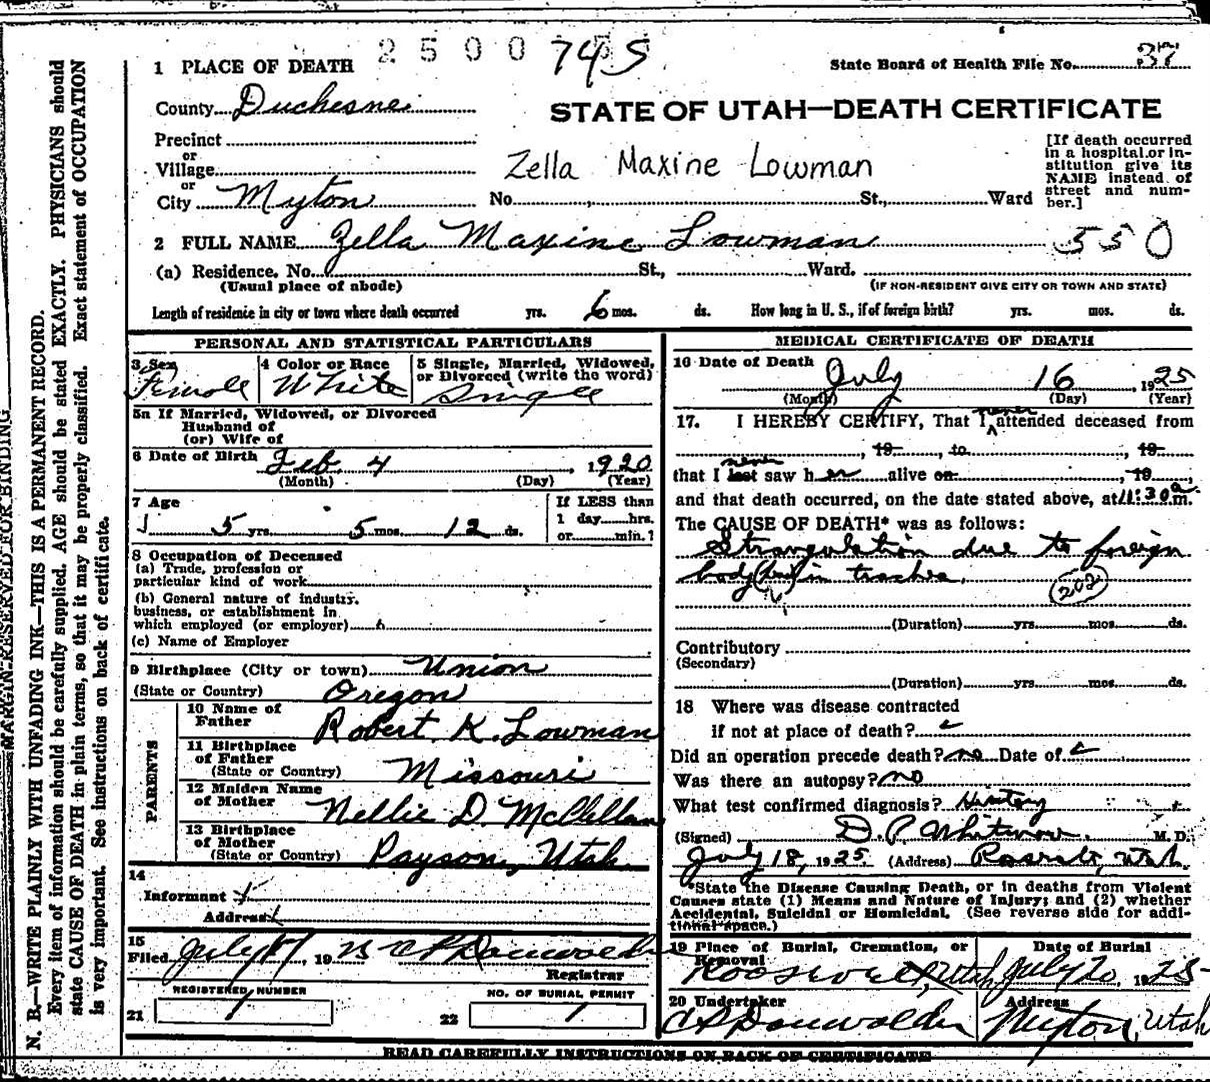 2500 745
1 PLACE OF DEATH
State Board of Health File No. 37
County Duchesne
STATE OF UTAH—DEATH CERTIFICATE
Precinct
or
Village
Zella Maxine Lowman
[If death occurred
in a hospital or in-
stitution give its
NAME instead of
street and num-
ber.]
or
City Myton No. , St., Ward
2 FULL NAME Zella Maxine Lowman 550
(a) Residence. No. St., Ward.
(Usual place of abode) (IF NON-RESIDENT GIVE CITY OR TOWN AND STATE)
Length of residence in city or town where death occurred yrs. 6 mos. ds. How long in U. S., if of foreign birth? yrs. mos. ds.
PERSONAL AND STATISTICAL PARTICULARS
3 Sex 4 Color or Race 5 Single, Married, Widowed,
or Divorced (write the word)
Female White Single
5a If Married, Widowed, or Divorced
Husband of
(or) Wife of
6 Date of Birth Feb. 4, 1920
(Month) (Day) (Year)
7 Age If LESS than
5 yrs. 5 mos. 12 ds. 1 day hrs.
or min.?
8 Occupation of Deceased
(a) Trade, profession or
particular kind of work
(b) General nature of industry,
business, or establishment in
which employed (or employer)
(c) Name of Employer
9 Birthplace (City or town) Union
(State or Country) Oregon
PARENTS
10 Name of
Father Robert K. Lowman
11 Birthplace
of Father
(State or Country) Missouri
12 Maiden Name
of Mother Nellie D. McClellan
13 Birthplace
of Mother
(State or Country) Payson, Utah
14
Informant
Address
15
Filed July 17, 1925 C P Dannwolder
Registrar
REGISTERED NUMBER NO. OF BURIAL PERMIT
21 1 22 1
MEDICAL CERTIFICATE OF DEATH
16 Date of Death
July 16, 1925
(Month) (Day) (Year)
17. I HEREBY CERTIFY, That I never attended deceased from
, 19 , to , 19
that I last never saw her alive on , 19 ,
and that death occurred, on the date stated above, at 11:30 a m.
The CAUSE OF DEATH* was as follows:
Strangulation due to foreign
body in trachea. 202
(Duration) yrs. mos. ds.
Contributory
(Secondary)
(Duration) yrs. mos. ds.
18 Where was disease contracted
if not at place of death?
Did an operation precede death? no Date of
Was there an autopsy? no
What test confirmed diagnosis? History
(Signed) D. P. Whitmore M. D.
July 18, 1925 (Address) Roosevelt, Utah
*State the Disease Causing Death, or in deaths from Violent
Causes state (1) Means and Nature of Injury; and (2) whether
Accidental, Suicidal or Homicidal. (See reverse side for addi-
tional space.)
19 Place of Burial, Cremation, or Date of Burial
Removal
Roosevelt, Utah July 20, 1925
20 Undertaker Address
C P Dannwolder Myton, Utah
READ CAREFULLY INSTRUCTIONS ON BACK OF CERTIFICATE
MARGIN RESERVED FOR BINDING
N. B.—WRITE PLAINLY WITH UNFADING INK—THIS IS A PERMANENT RECORD.
Every item of information should be carefully supplied. AGE should be stated EXACTLY. PHYSICIANS should
state CAUSE OF DEATH in plain terms, so that it may be properly classified. Exact statement of OCCUPATION
is very important. See instructions on back of certificate.